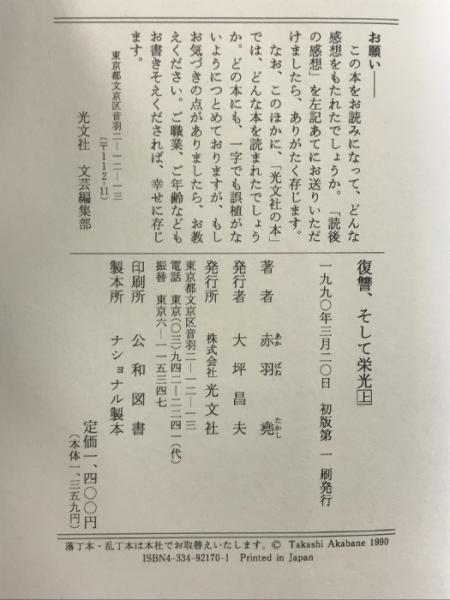 お願い――
この本をお読みになって、どんな
感想をもたれたでしょうか。「読後
の感想」を左記あてにお送りいただ
けましたら、ありがたく存じます。
なお、このほかに、「光文社の本」
では、どんな本を読まれたでしょう
か。どの本にも、一字でも誤植がな
いようにつとめておりますが、もし
お気づきの点がありましたら、お教
えください。ご職業、ご年齢なども
お書きそえくだされば、幸せに存じ
ます。
東京都文京区音羽二―一二―一三
(〒112-11)
光文社 文芸編集部
復讐、そして栄光 上
一九九〇年三月二〇日 初版第一刷発行
著者 赤羽堯
あかばねたかし
発行者 大坪昌夫
発行所 株式会社 光文社
東京都文京区音羽二―一二―一三
電話 東京(〇三)九四二―二二四一(代)
振替 東京六―一一五三四七
印刷所 公和図書
製本所 ナショナル製本
定価一、四〇〇円
(本体一、三五九円)
落丁本・乱丁本は本社でお取替えいたします。© Takashi Akabane 1990
ISBN4-334-92170-1 Printed in Japan